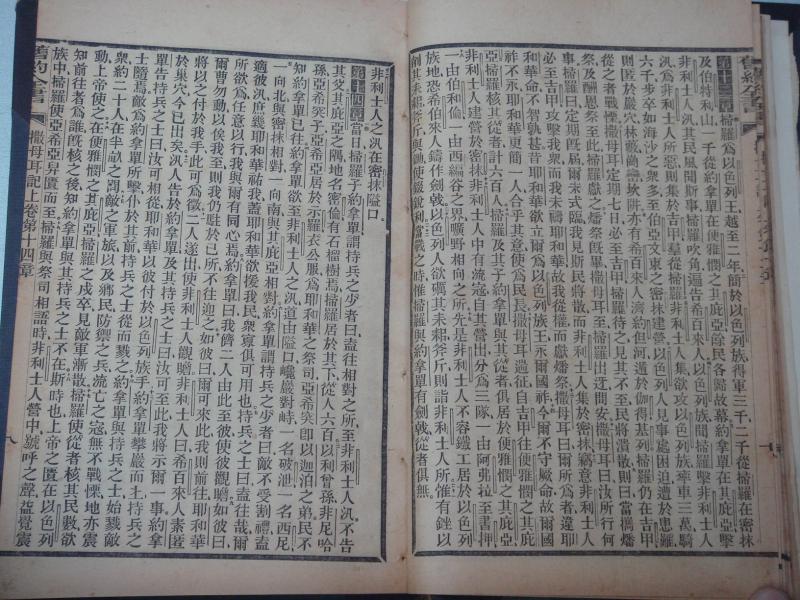 第十三章掃羅爲以色列王越至二年簡於以色列族得軍三千二千從掃羅在密抹
及伯特利山一千從約拿單在便雅憫之其庇亞餘民各歸故幕約拿單在其庇亞擊
非利士人汛其民風聞斯事掃羅吹角遍告希百來人以色列族聞掃羅擊非利士人
汛爲非利士人所惡則集於吉甲羣從掃羅非利士人集欲攻以色列族車三萬騎
六千步卒如海沙之衆多至伯亞文東之密抹建營以色列人見事處困迫遭於患難
則匿於巖穴林藪崗巒坎阱亦有希百來人濟約但河遁於伽得基列掃羅仍在吉甲
從之者戰慄撒母耳定期七日必至吉甲掃羅待之見其不至民將潰散則曰當攜燔
祭及酬恩祭至此掃羅獻之燔祭旣畢撒母耳至掃羅出迓問安撒母耳曰汝所行何
事掃羅曰定期旣屆爾來臨我見斯民將散而非利士人集於密抹竊意非利士人
必至吉甲攻擊我而我未禱耶和華故我從權而獻燔祭撒母耳曰爾所爲者違耶
和華命不智孰甚昔耶和華欲立爾爲以色列族王永爾國祚今爾不守厥命故爾國
祚不永耶和華更簡一人合乎其意使爲民長撒母耳遄征自吉甲往便雅憫之其庇
亞掃羅核其從者計六百人掃羅及子約拿單與其從者俱居於便雅憫之其庇亞
非利士人建營於密抹非利士人中有流寇自其營出分爲三隊一由阿弗拉至書押
一由伯和倫一由西編谷之界曠野相向之所先是非利士人不容鐵工居於以色列
族地恐希伯來人鑄作劍戟以色列人欲礪其耒耜斧斤則詣非利士人所惟有銼以
劍其耒耜斧斤與鋤使厥銳利當戰之時惟掃羅與約拿單有劍戟從者俱無
非利士人之汛在密抹隘口
第十四章當日掃羅子約拿單謂持兵之少者曰盍往相對之所至非利士人汛不告
其父其庇亞之隅地名密倫有石榴樹焉掃羅居於其下從人六百以利曾孫非尼哈
孫亞希突子亞希亞居於示羅衣公服爲耶和華之祭司亞希突卽以迦泊之弟民不
知約拿單已往約拿單欲至非利士人之汛道由隘口巉巖對峙一名破泄一名西尼
一向北與密抹相對一向南與其庇亞相對約拿單謂持兵之少者曰敵不受割禮盍
適彼汛庶幾耶和華祐我蓋耶和華欲援我民衆寡俱可用也持兵之士曰盍往哉爾
所欲爲任意以行我與爾有同心焉約拿單曰我儕二人由此至彼使彼觀瞻如彼曰
爾曹勿動以俟我至則我仍駐於已所不往迎之如彼曰爾可來此我則前往耶和華
將以之付於我手以此可爲徵二人遂出使非利士人觀瞻非利士人曰希百來人素匿
於巢穴今已出矣汛人告於約拿單及其持兵之士曰汝可至此我將示爾一事約拿
單告持兵之士曰汝可相從耶和華以彼付於以色列族手約拿單攀巖而上持兵之
士隨焉敵爲約拿單所擊仆於其前持兵之士從而戮之約拿單與持兵之士始戮敵
衆約二十人在半畝之間敵之軍旅以及鄉民防禦之兵流亡之寇無不戰慄地亦震
動上帝使之在便雅憫之其庇亞掃羅之戍卒見敵軍漸散掃羅使從者核其民數欲
知前往者爲誰旣核之後知約拿單與持兵之士不在斯時也上帝之匱在以色列
族中掃羅使亞希亞舁匱而至掃羅與祭司相語時非利士人營中號呼之聲益覺震
舊約全書 撒母耳記上卷第十四章 八